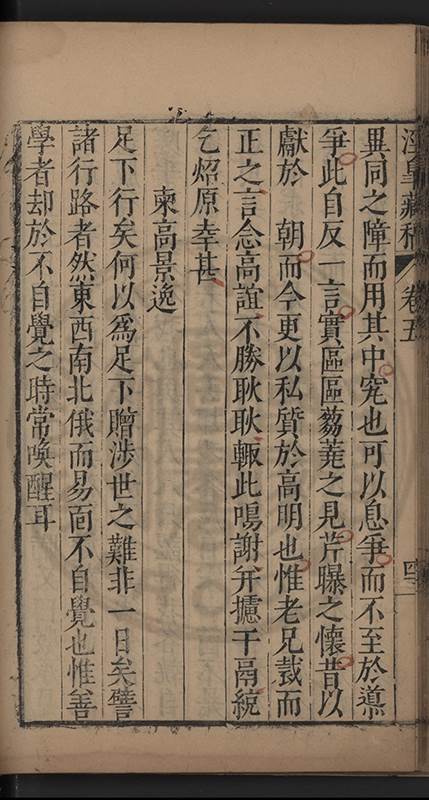 涇皐藏稿 卷五 四
異同之障而用其中究也可以息爭而不至於導
爭此自反一言實區區芻蕘之見芹曝之懷昔以
獻於 朝而今更以私質於高明也惟老兄裁而
正之言念高誼不勝耿耿輙此鳴謝幷攄干鬲統
乞炤原幸甚
柬高景逸
足下行矣何以為足下贈涉世之難非一日矣譬
諸行路者然東西南北俄而易面不自覺也惟善
學者却於不自覺之時常喚醒耳